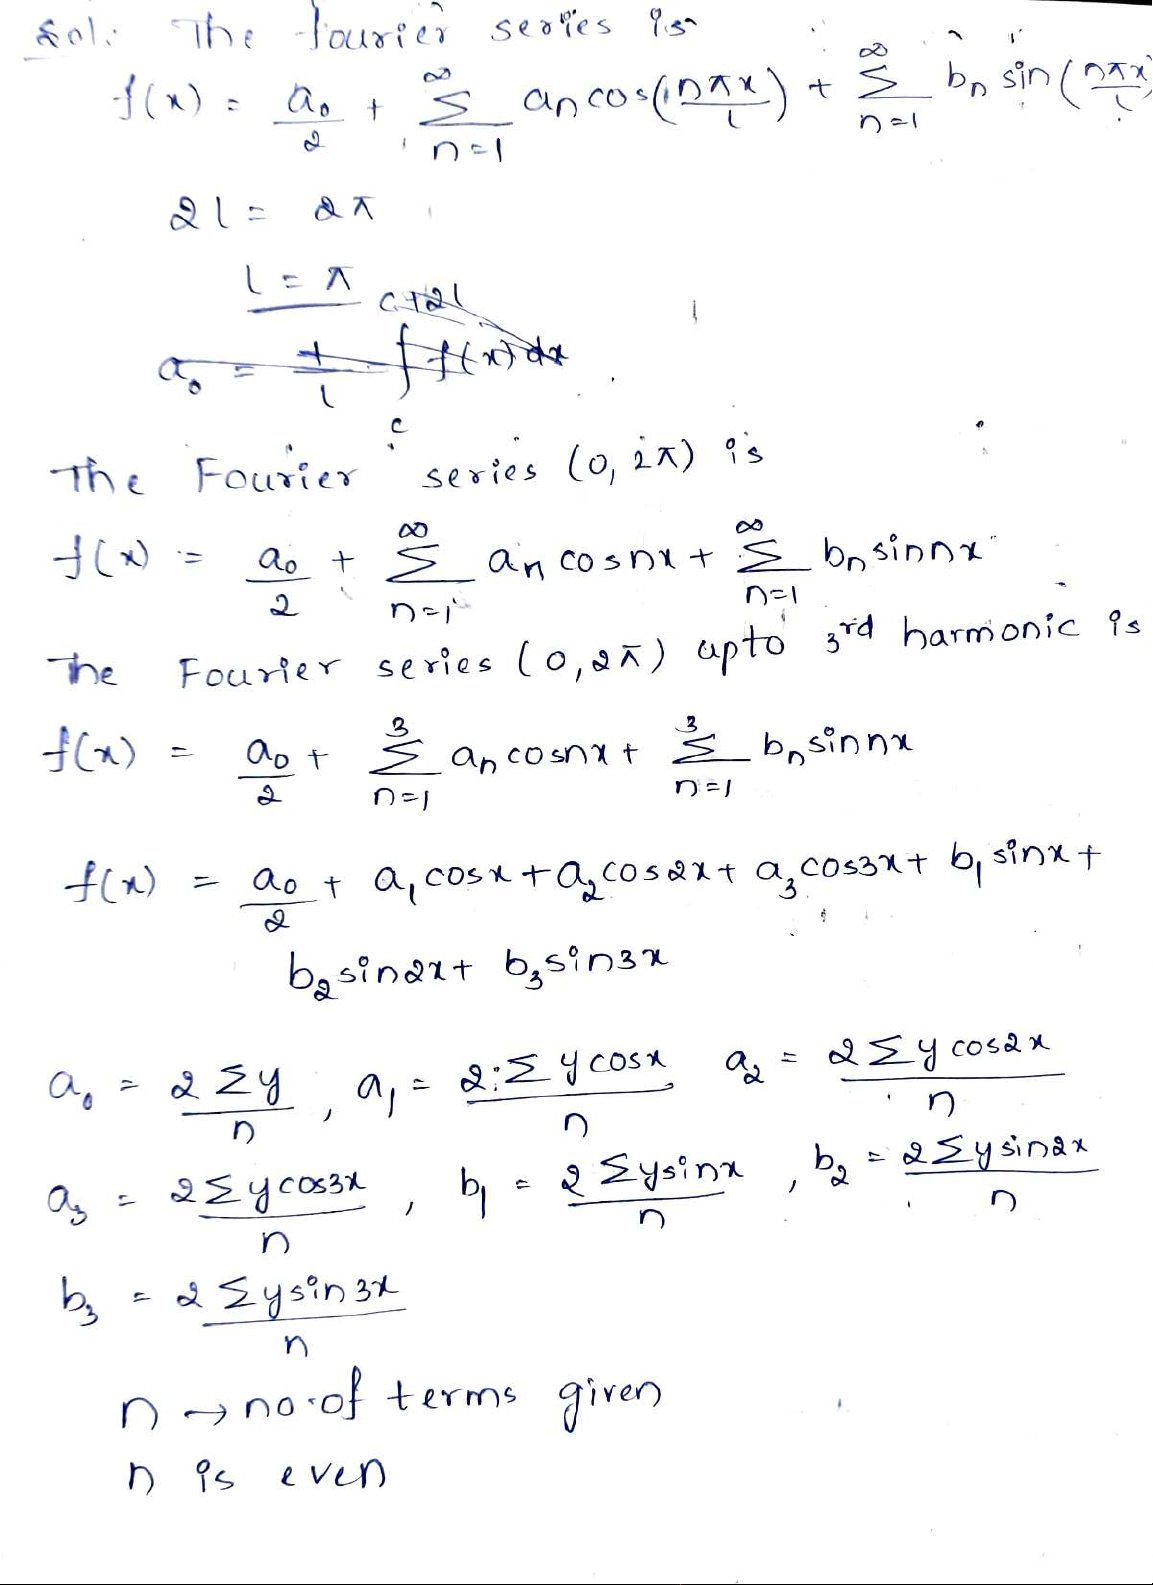 Sol: The fourier series is
f(x) = a₀/2 + ∞Σn=1 an cos(nπx/l) + ∞Σn=1 bn sin(nπx/l)
2l = 2π
l = π
a₀ = 1/l ∫c^c+2l f(x) dx
The Fourier series (0, 2π) is
f(x) = a₀/2 + ∞Σn=1 an cosnx + ∞Σn=1 bn sinnx
The Fourier series (0, 2π) upto 3rd harmonic is
f(x) = a₀/2 + 3Σn=1 an cosnx + 3Σn=1 bn sinnx
f(x) = a₀/2 + a₁ cosx + a₂ cos2x + a₃ cos3x + b₁ sinx +
b₂ sin2x + b₃ sin3x
a₀ = 2Σy/n , a₁ = 2Σy cosx/n a₂ = 2Σy cos2x/n
a₃ = 2Σy cos3x/n , b₁ = 2Σy sinx/n , b₂ = 2Σy sin2x/n
b₃ = 2Σy sin3x/n
n → no. of terms given
n is even